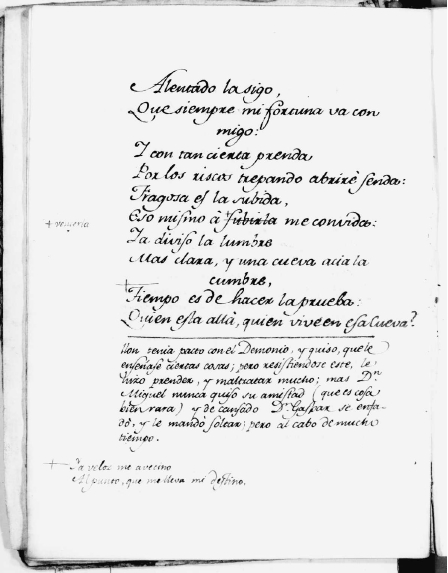 Alentado la sigo,
Que siempre mi fortuna va con
migo:
I con tan cierta prenda
Por los riscos trepando abrirè senda:
Fragosa es la subida,
Eso mismo à subirla me convida:
+ venceria
Ia diviso la lumbre
Mas clara, y una cueva acia la
cumbre,
Tiempo es de hacer la prueba:
Quien esta allà, quien vive en esa Cueva?
tenia pacto con el Demonio, y quiso, que le
enseñase ciertas cosas; pero resistiendose este, le
hizo prender, y maltratar mucho; mas Dn
Miguel nunca quiso su amistad (que es cosa
bien rara) y de cansado Dn Gaspar se enfa-
dò, y le mandò soltar: pero al cabo de mucho
tiempo.
+ Ia veloz me avecino
Al punto, que me lleva mi destino.